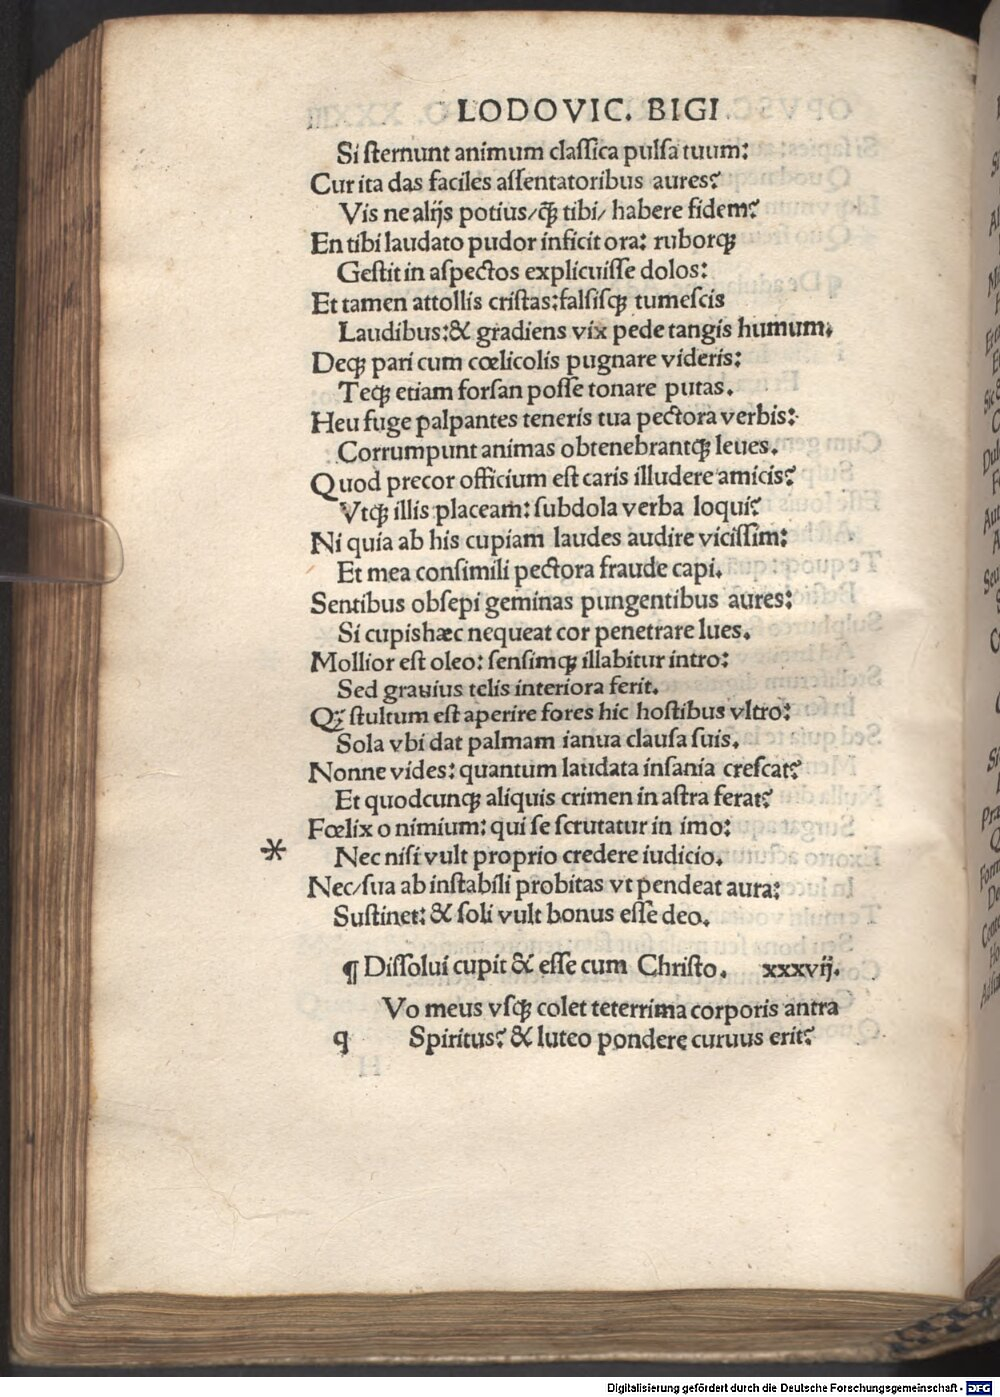 LODOVIC. BIGI
Si sternunt animum classica pulsa tuum:
Cur ita das faciles assentatoribus aures?
Vis ne alijs potius/ꝙ̃ tibi/ habere fidem?
En tibi laudato pudor inficit ora: ruborqꝫ
Gestit in aspectos explicuisse dolos:
Et tamen attollis cristas:falsisqꝫ tumescis
Laudibus:& gradiens vix pede tangis humum.
Deqꝫ pari cum cœlicolis pugnare videris:
Teqꝫ etiam forsan posse tonare putas.
Heu fuge palpantes teneris tua pectora verbis:
Corrumpunt animas obtenebrantqꝫ leues.
Quod precor officium est caris illudere amicis?
Vtqꝫ illis placeam: subdola verba loqui?
Ni quia ab his cupiam laudes audire vicissim:
Et mea consimili pectora fraude capi.
Sentibus obsepi geminas pungentibus aures:
Si cupis hæc nequeat cor penetrare lues.
Mollior est oleo: sensimqꝫ illabitur intro:
Sed grauius telis interiora ferit.
Qꝫ̃ stultum est aperire fores hic hostibus vltro:
Sola vbi dat palmam ianua clausa suis.
Nonne vides: quantum laudata insania crescat?
Et quodcunqꝫ aliquis crimen in astra ferat?
Fœlix o nimium: qui se scrutatur in imo:
* Nec nisi vult proprio credere iudicio.
Nec/sua ab instabili probitas vt pendeat aura:
Sustinet: & soli vult bonus esse deo.
¶ Dissolui cupit & esse cum Christo. xxxvij.
Vo meus vsqꝫ colet teterrima corporis antra
q Spiritus? & luteo pondere curuus erit?
Digitalisierung gefördert durch die Deutsche Forschungsgemeinschaft - DFG